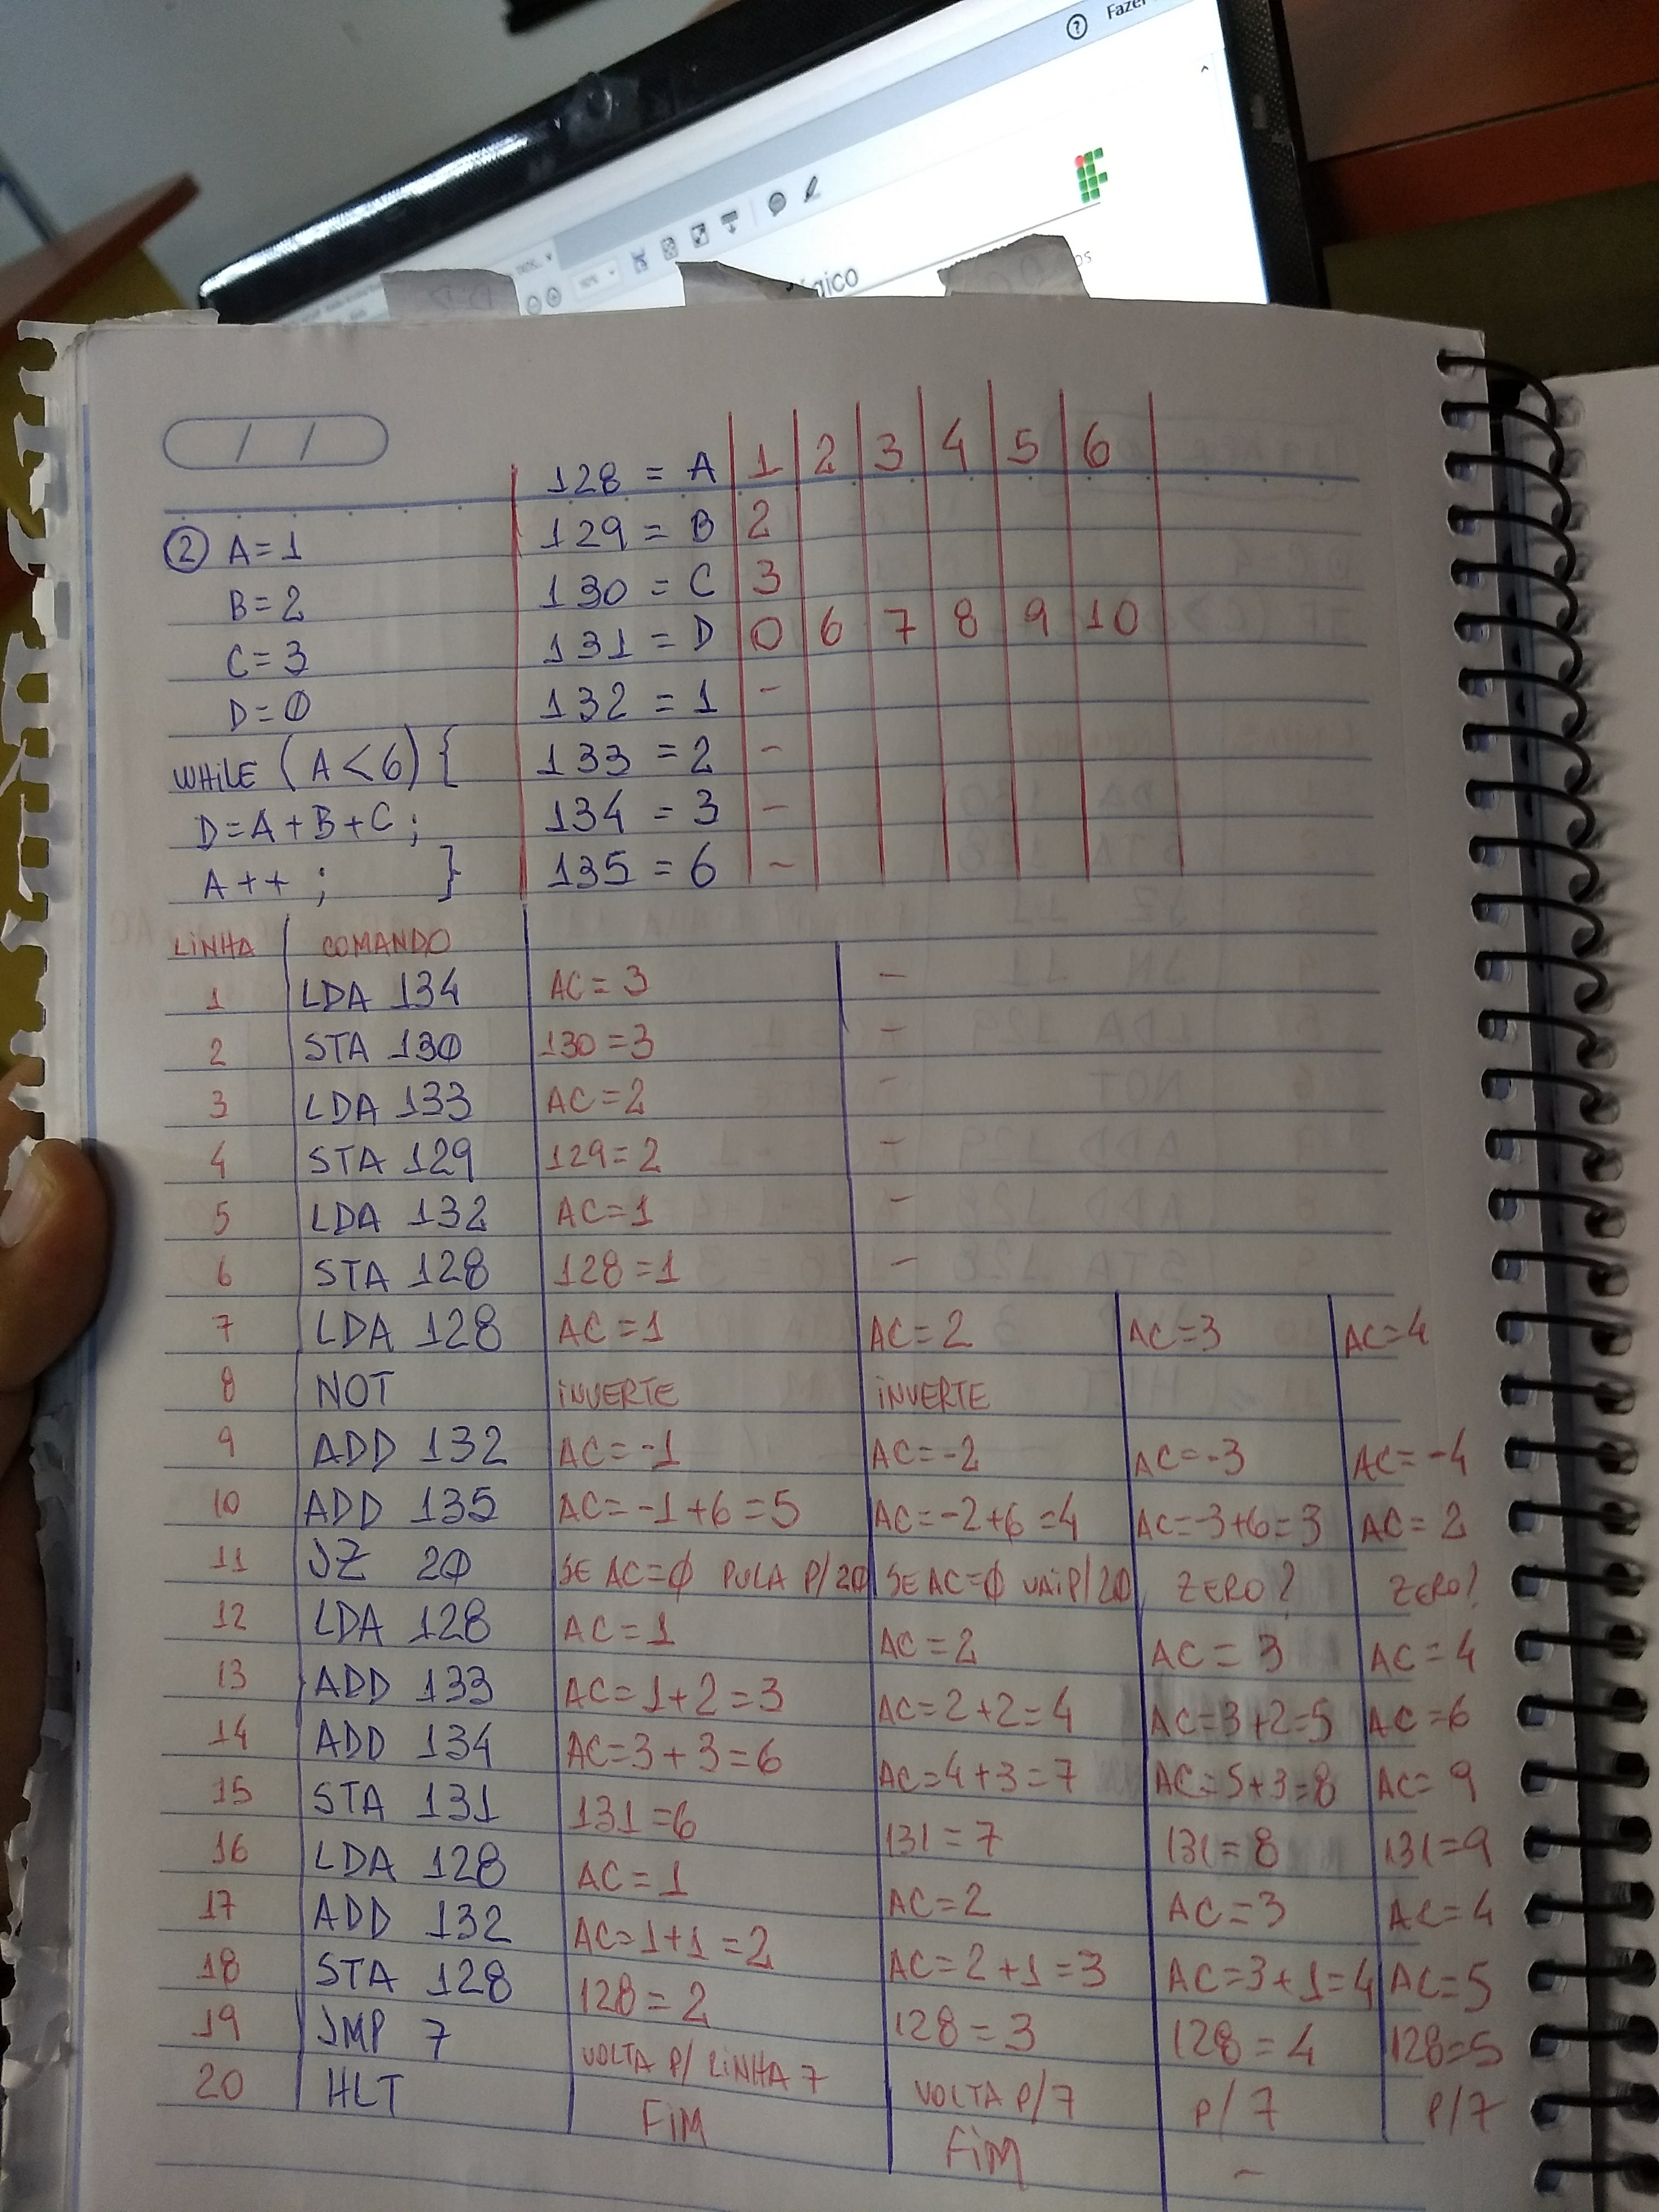 ? Fazer
gico
os
128 = A 1 2 3 4 5 6
② A=1 129 = B 2
B=2 130 = C 3
C=3 131 = D 0 6 7 8 9 10
D=Ø 132 = 1 -
WHiLE (A<6) { 133 = 2 -
D=A+B+C; 134 = 3 -
A++; } 135 = 6 -
LiNHA COMANDO
1 LDA 134 AC=3 -
2 STA 13Ø 130=3 -
3 LDA 133 AC=2 -
4 STA 129 129=2 -
5 LDA 132 AC=1 -
6 STA 128 128=1 -
7 LDA 128 AC=1 AC=2 AC=3 AC=4
8 NOT iNVERTE iNVERTE
9 ADD 132 AC=-1 AC=-2 AC=-3 AC=-4
10 ADD 135 AC=-1+6=5 AC=-2+6=4 AC=-3+6=3 AC=2
11 JZ 2Ø SE AC=Ø PULA P/2Ø SE AC=Ø VAiP/2Ø ZERO? ZERO?
12 LDA 128 AC=1 AC=2 AC=3 AC=4
13 ADD 133 AC=1+2=3 AC=2+2=4 AC=3+2=5 AC=6
14 ADD 134 AC=3+3=6 AC=4+3=7 AC=5+3=8 AC=9
15 STA 131 131=6 131=7 131=8 131=9
16 LDA 128 AC=1 AC=2 AC=3 AC=4
17 ADD 132 AC=1+1=2 AC=2+1=3 AC=3+1=4 AC=5
18 STA 128 128=2 128=3 128=4 128=5
19 JMP 7 VOLTA P/ LiNHA 7 VOLTA P/7 P/7 P/7
20 HLT FiM FiM -